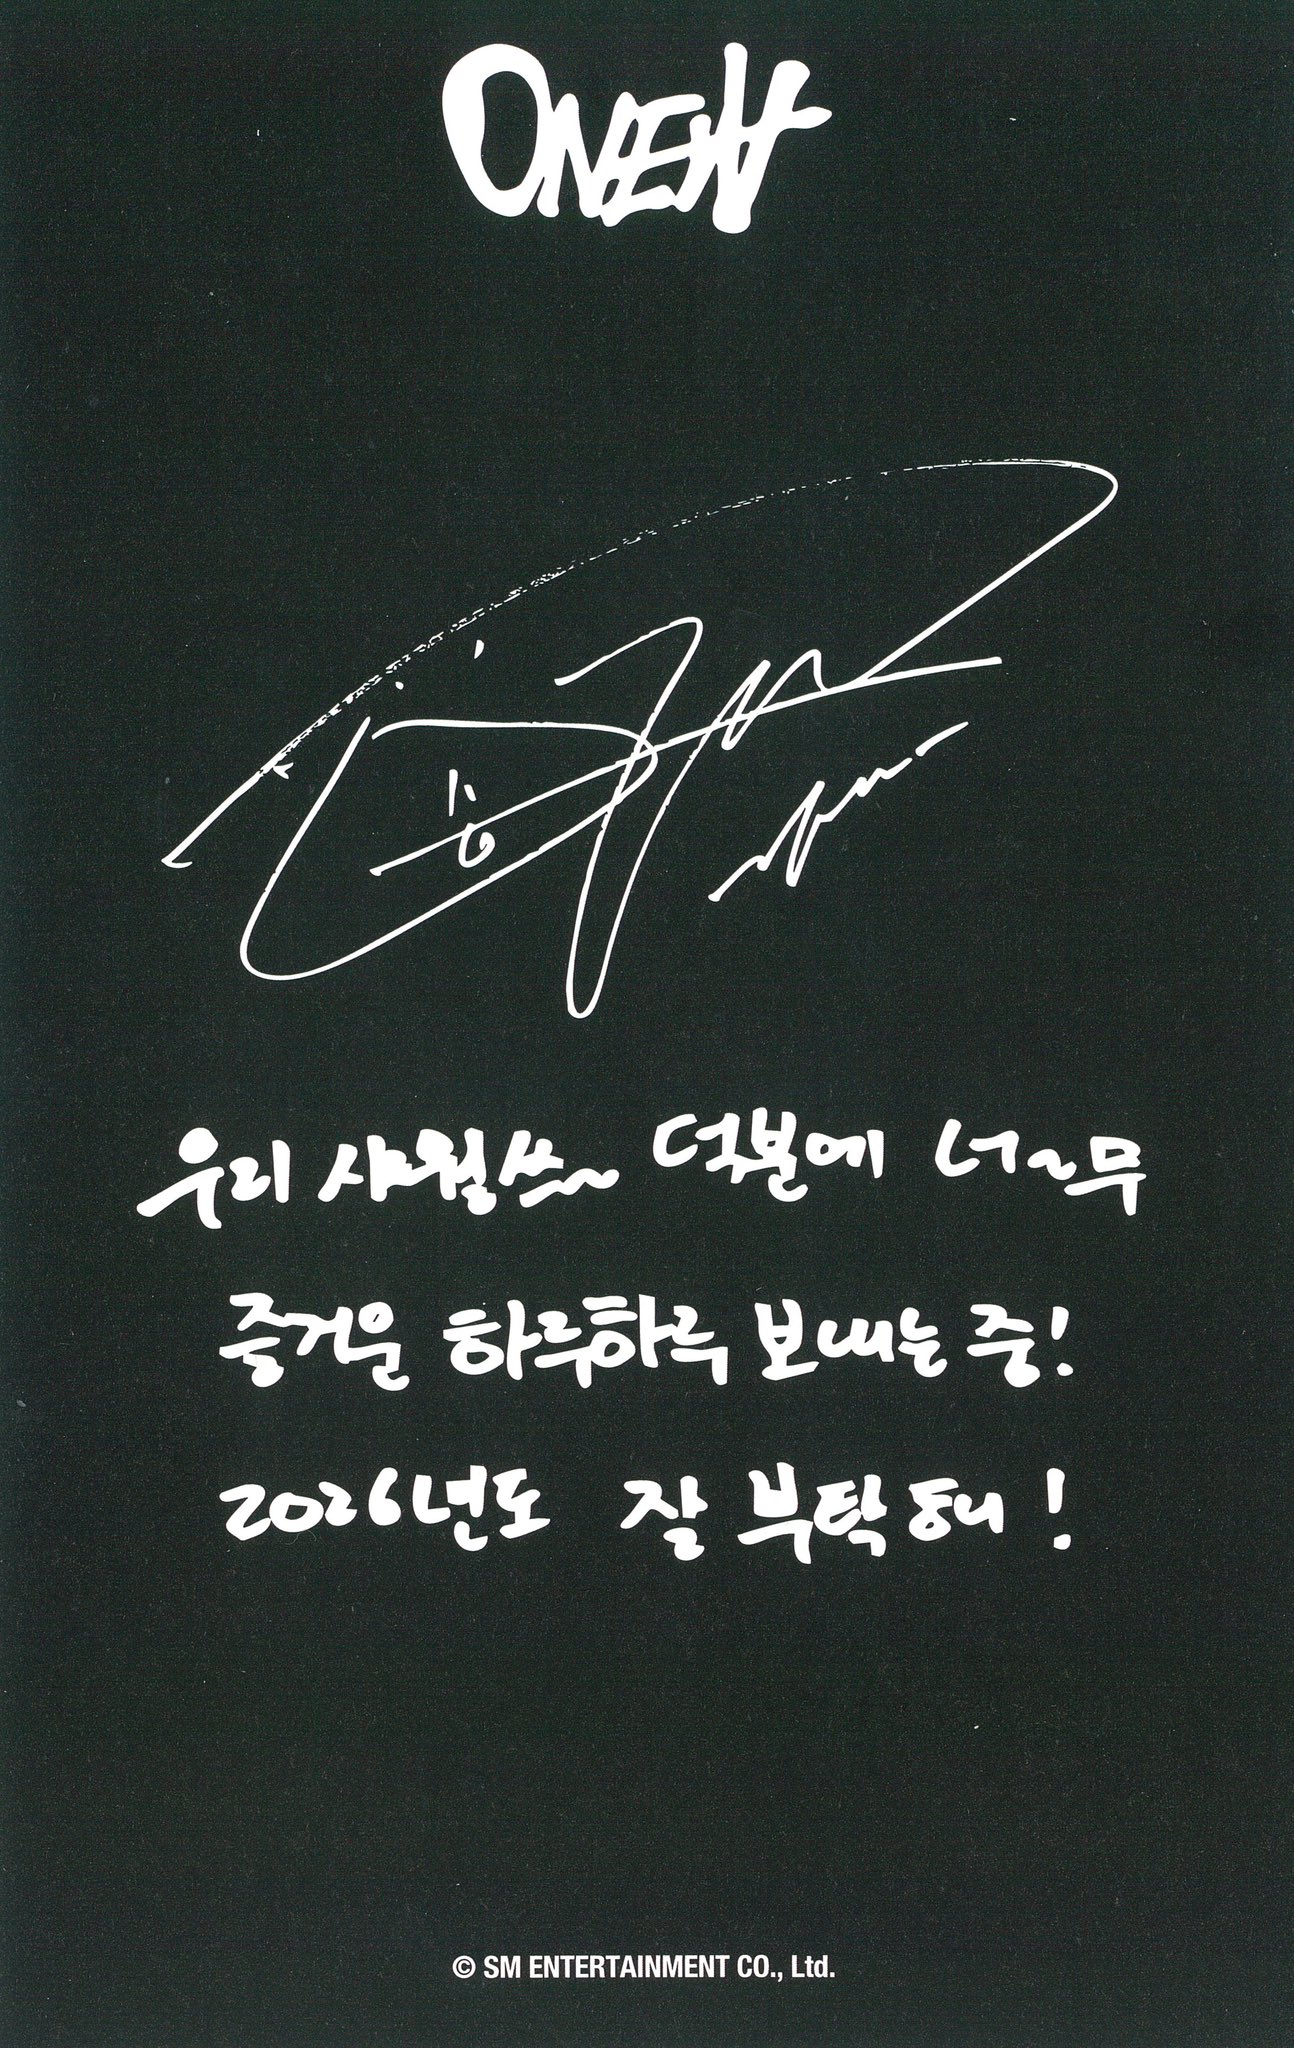 ONEW
우리 샤월쓰~ 덕분에 너~무
즐거운 하루하루 보내는 중!
2026년도 잘 부탁해!
© SM ENTERTAINMENT CO., Ltd.